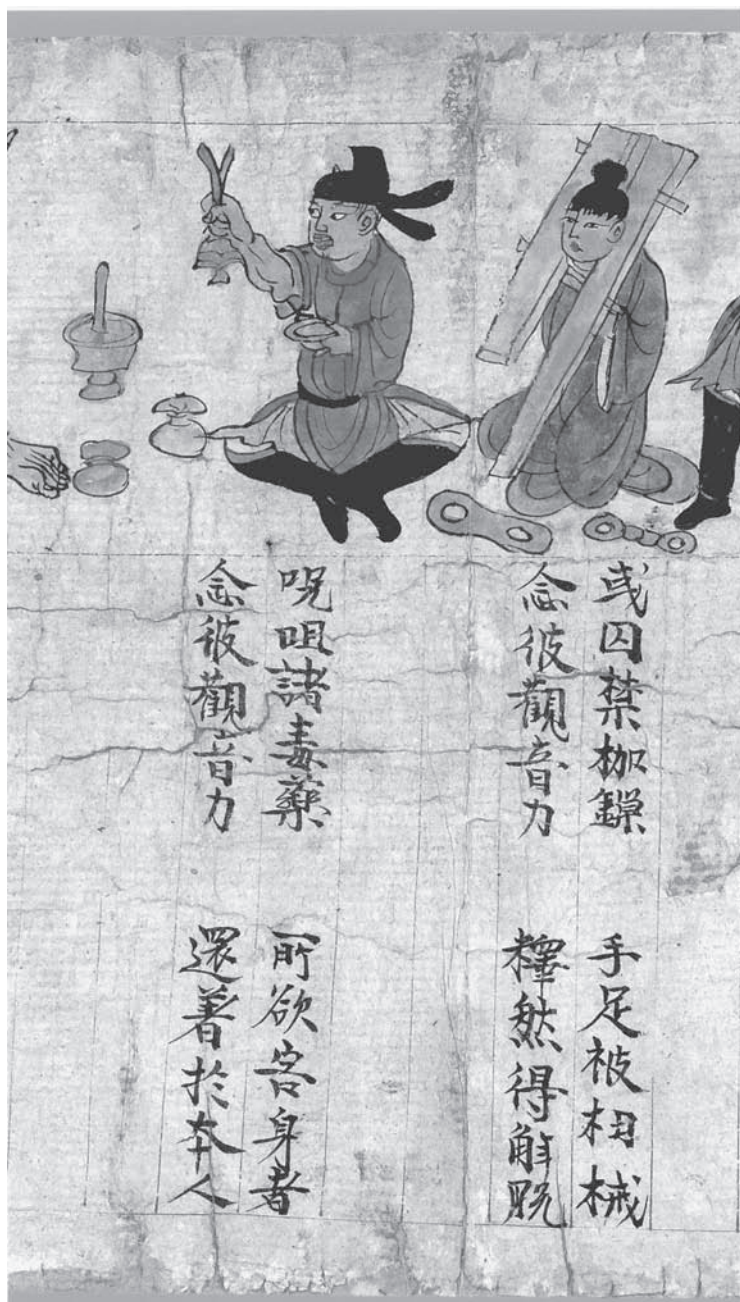 或囚禁枷鏁　手足被杻械
念彼觀音力　釋然得解脫
呪咀諸毒藥　所欲害身者
念彼觀音力　還著於本人